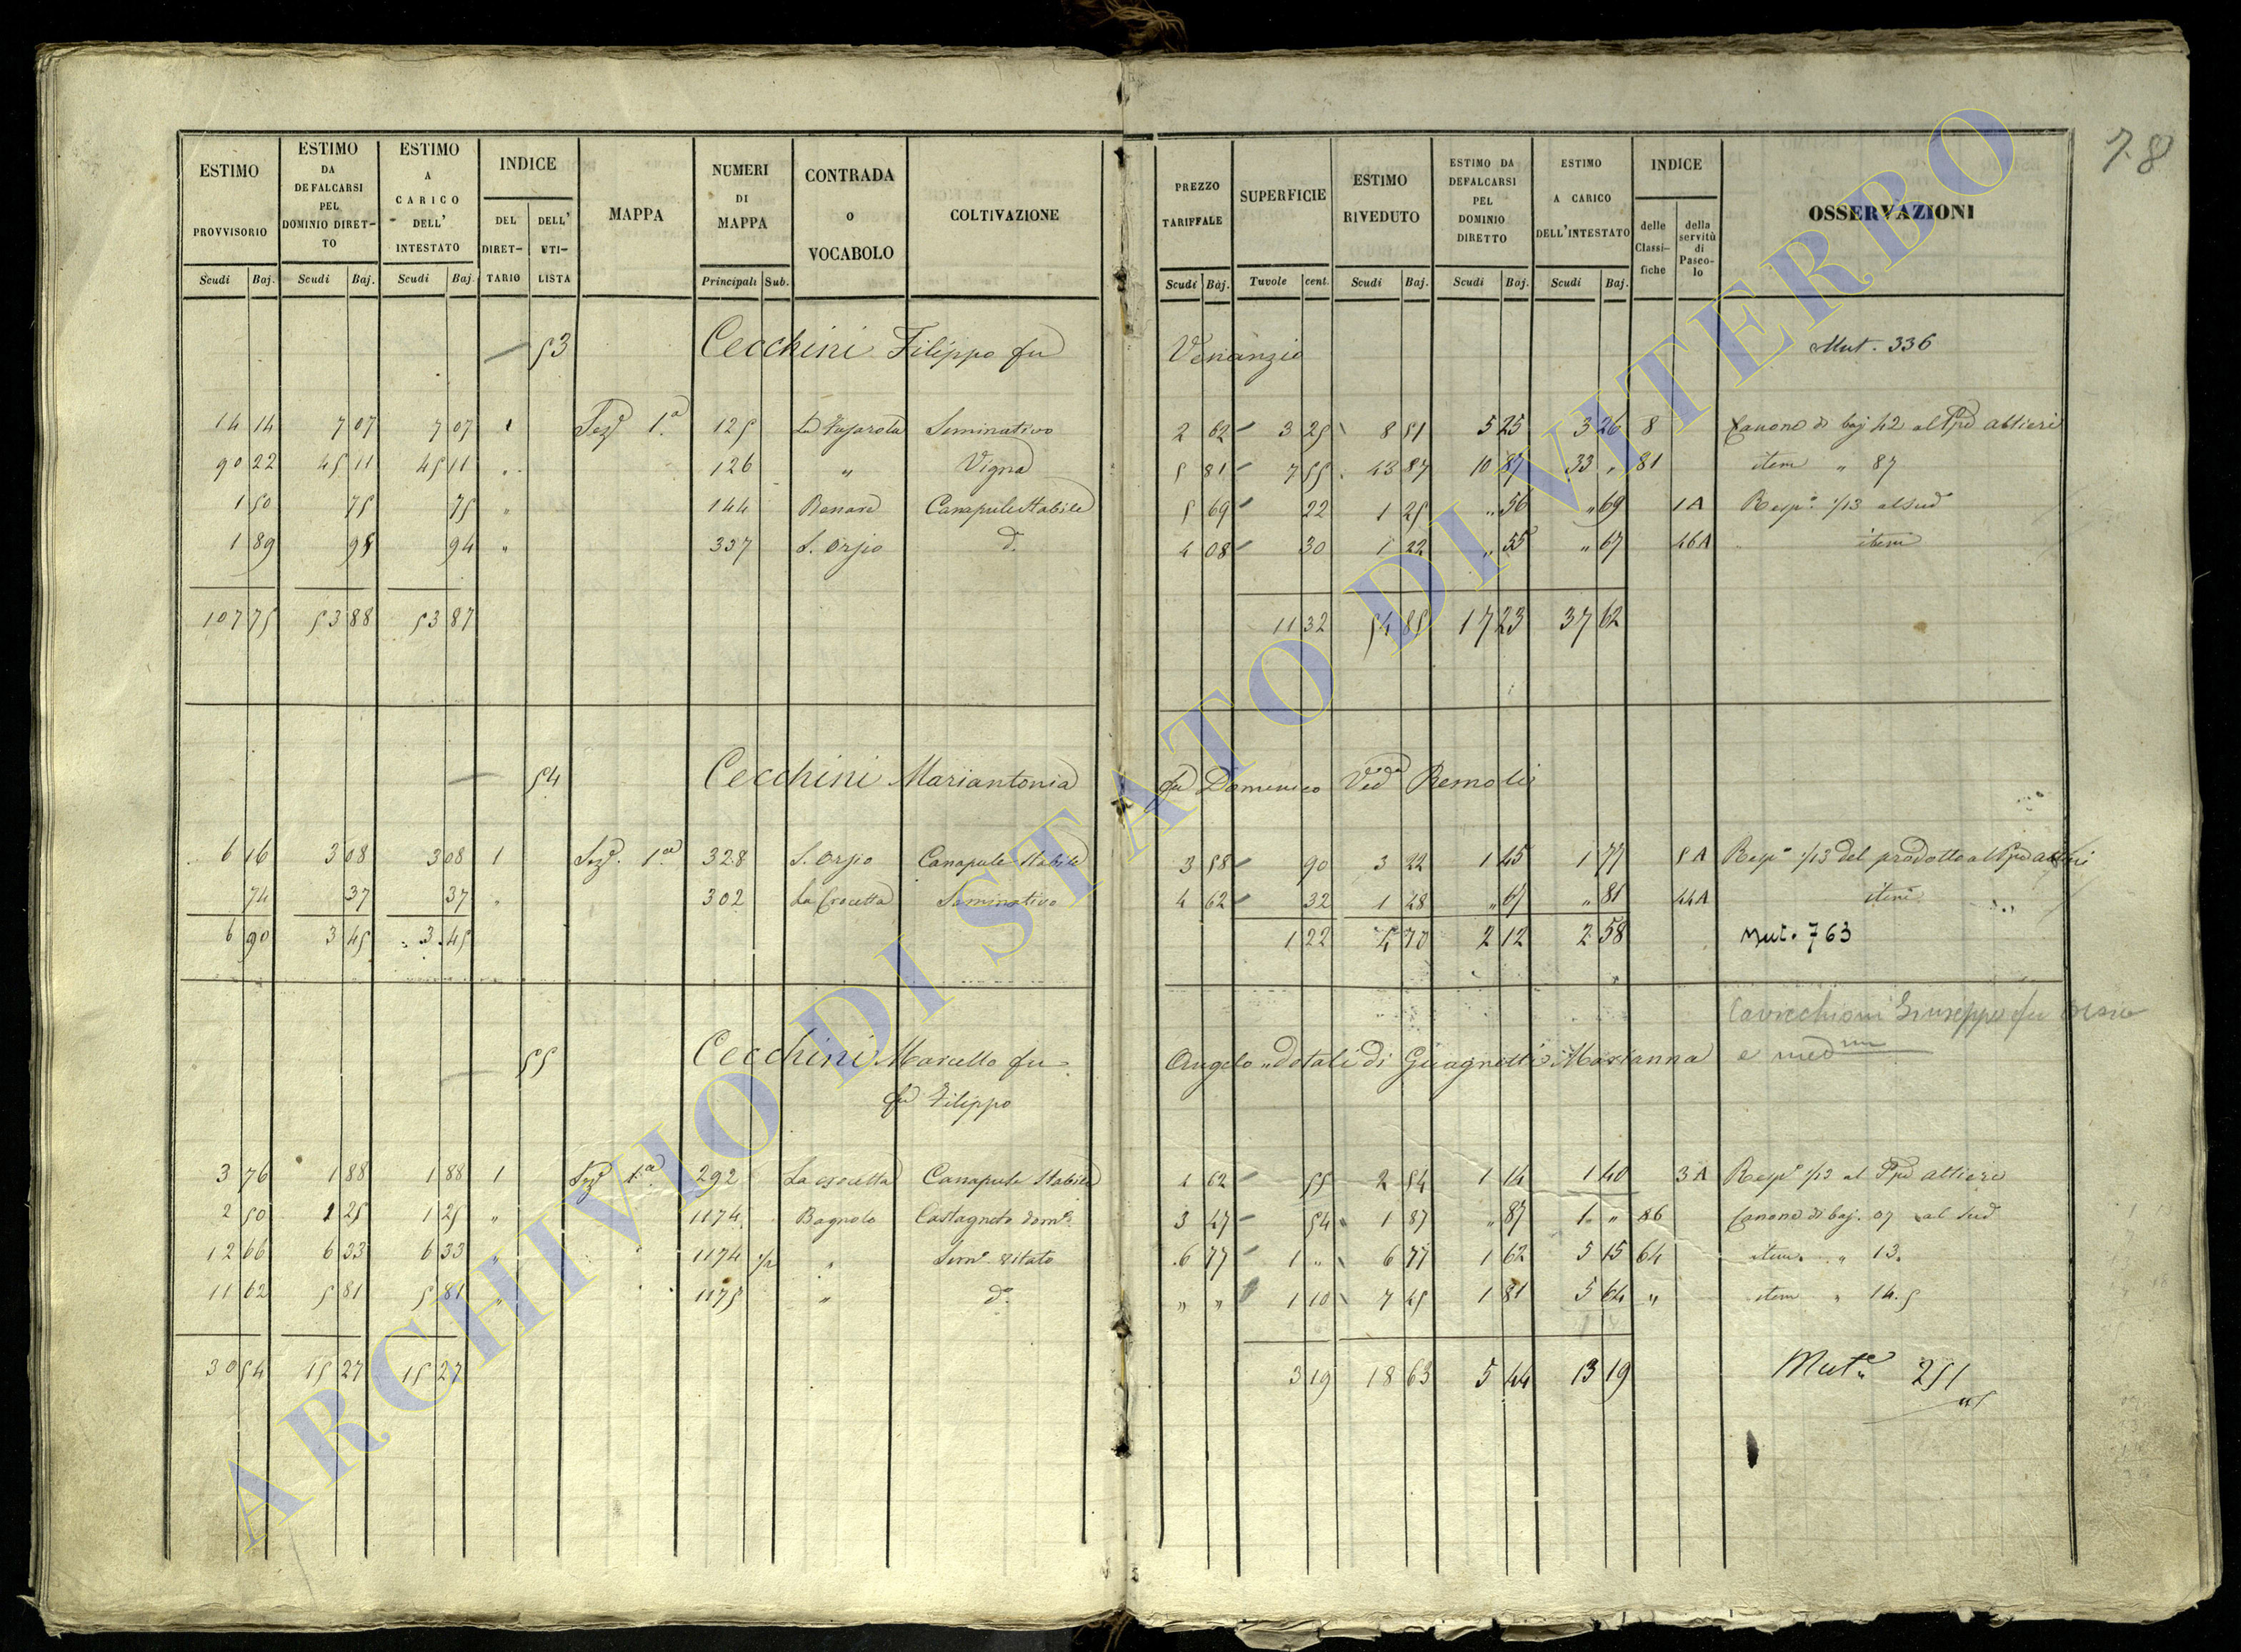 78
ESTIMO PROVVISORIO Scudi Baj.
ESTIMO DA DEFALCARSI PEL DOMINIO DIRETTO Scudi Baj.
ESTIMO A CARICO DELL' INTESTATO Scudi Baj.
INDICE DEL DIRETTARIO DELL' UTILISTA
MAPPA
NUMERI DI MAPPA Principali Sub.
CONTRADA O VOCABOLO
COLTIVAZIONE
PREZZO TARIFFALE Scudi Baj.
SUPERFICIE Tavole cent.
ESTIMO RIVEDUTO Scudi Baj.
ESTIMO DA DEFALCARSI PEL DOMINIO DIRETTO Scudi Baj.
ESTIMO A CARICO DELL'INTESTATO Scudi Baj.
INDICE delle Classifiche della servitù di Pascolo
OSSERVAZIONI
53 Cecchini Filippo fu Venanzio Mut. 336
14 14 7 07 7 07 1 Sez.e 1.a 125 Seminativo 2 62 3 25 8 51 5 25 3 26 8 Canone di baj 42 al Ppe Altieri
90 22 45 11 45 11 " 126 " Vigna 5 81 7 55 43 87 10 87 33 " 81 item " 87
1 50 75 75 " 144 Canapule Stabile 5 69 22 1 25 " 56 " 69 1A Resp.e 1/13 al sud.o
1 89 95 94 " 337 S. Orsio d. 4 08 30 1 22 " 55 " 67 46A item
107 75 53 88 53 87 11 32 54 85 17 23 37 62
54 Cecchini Mariantonia fu Domenico Ved.a Remoli
6 16 3 08 3 08 1 Sez.e 1.a 328 S. Orsio Canapule Stabile 3 58 90 3 22 1 45 1 77 5A Resp.e 1/13 del prodotto al Ppe Altieri
74 37 37 " 302 La Crocetta Seminativo 4 62 32 1 28 " 67 " 81 44A item
6 90 3 45 3 45 1 22 4 70 2 12 2 58 Mut. 763
Cavicchioni Giuseppe fu
e med
55 Cecchini Marcello fu Angelo " dotali di Guagnetti Marianna
fu Filippo
3 76 1 88 1 88 1 Sez.e 1.a 292 La Crocetta Canapule Stabile 4 62 55 2 54 1 14 1 40 3A Resp.e 1/13 al Ppe Altieri
2 50 1 25 1 25 " 1174 Bagnolo Castagneto dom.o 3 47 54 1 87 " 87 1 " 86 Canone di baj. 07 al sud
12 66 6 33 6 33 " 1174 1/2 " Sem.o vitato 6 77 1 " 6 77 1 62 5 15 64 item " 13.
11 62 5 81 5 81 " 1175 " d.o " " 1 10 7 45 1 81 5 64 " item " 14.5
30 54 15 27 15 27 3 19 18 63 5 44 13 19 Mut.e 251
ARCHIVIO DI STATO DI VITERBO